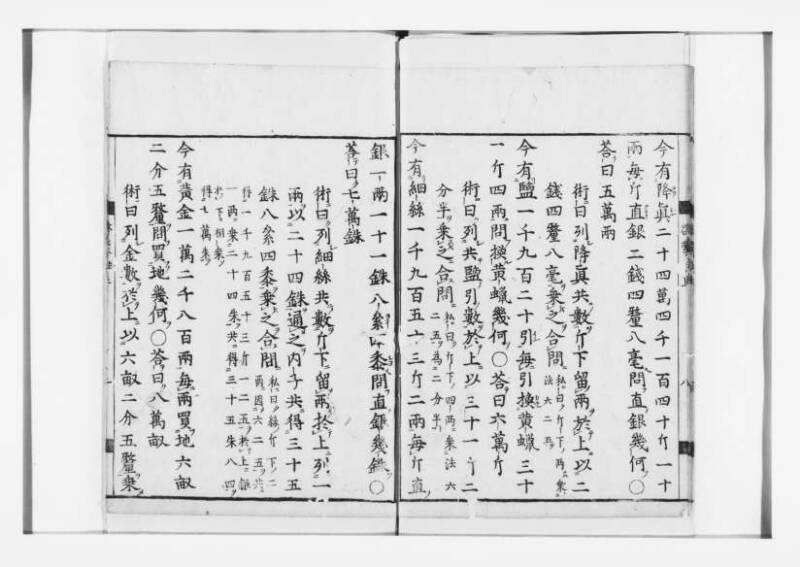 今有降真二十四萬四千一百四十斤一十
兩每斤直銀二錢四釐八毫問直銀幾何〇
答曰五萬兩
術曰列降真共數斤下留兩於上以二
錢四釐八毫乘之合問
今有鹽一千九百二十引每引換黄蠟三十
一斤四兩問換黄蠟幾何〇答曰六萬斤
術曰列共鹽引數於上以三十一斤二
分半乘之合問
今有細絲一千九百五十三斤二兩每斤直
銀一兩一十一銖八絫四黍問直銀幾銖〇
答曰七萬銖
術曰列細絲共數斤下留兩於上列一
兩以二十四銖通之内子共得三十五
銖八絫四黍乘之合問
今有黄金一萬二千八百兩每兩買地六畝
二分五釐問買地幾何〇答曰八萬畝
術曰列金數於上以六畝二分五釐乘